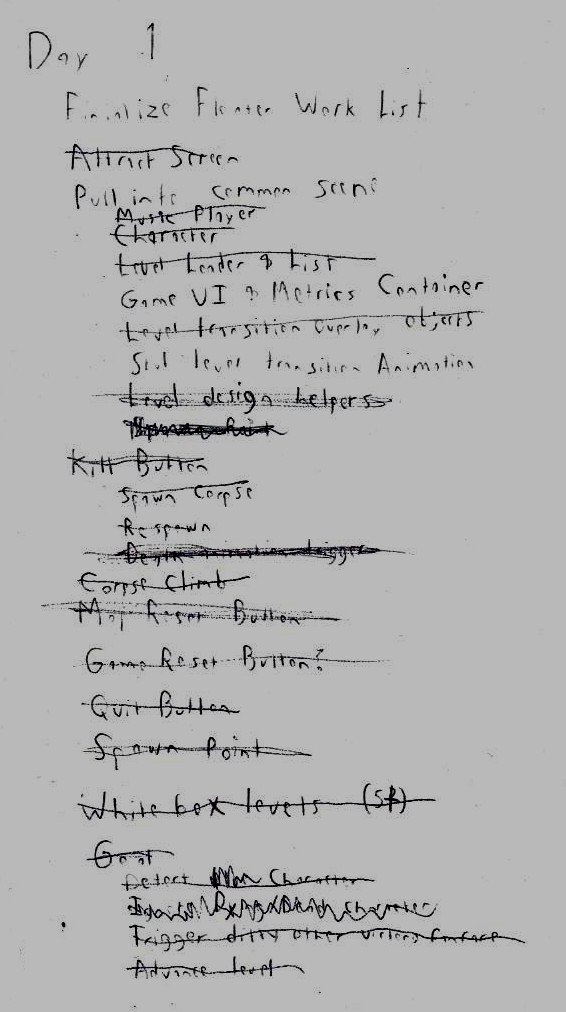 Day 1
Finalize Floater Work List
Attract Screen
Pull into common scene
Music Player
Character
Level Loader & List
Game UI & Metrics Container
Level transition Overlay objects
level transition Animation
Level design helpers
Spawn Point
Kill Button
Spawn Corpse
Respawn
Death animation trigger
Corpse Climb
Map Reset Button
Game Reset Button?
Quit Button
Spawn Point
White box levels
Goal
Detect Character
Character
Trigger other victory fanfare
Advance level